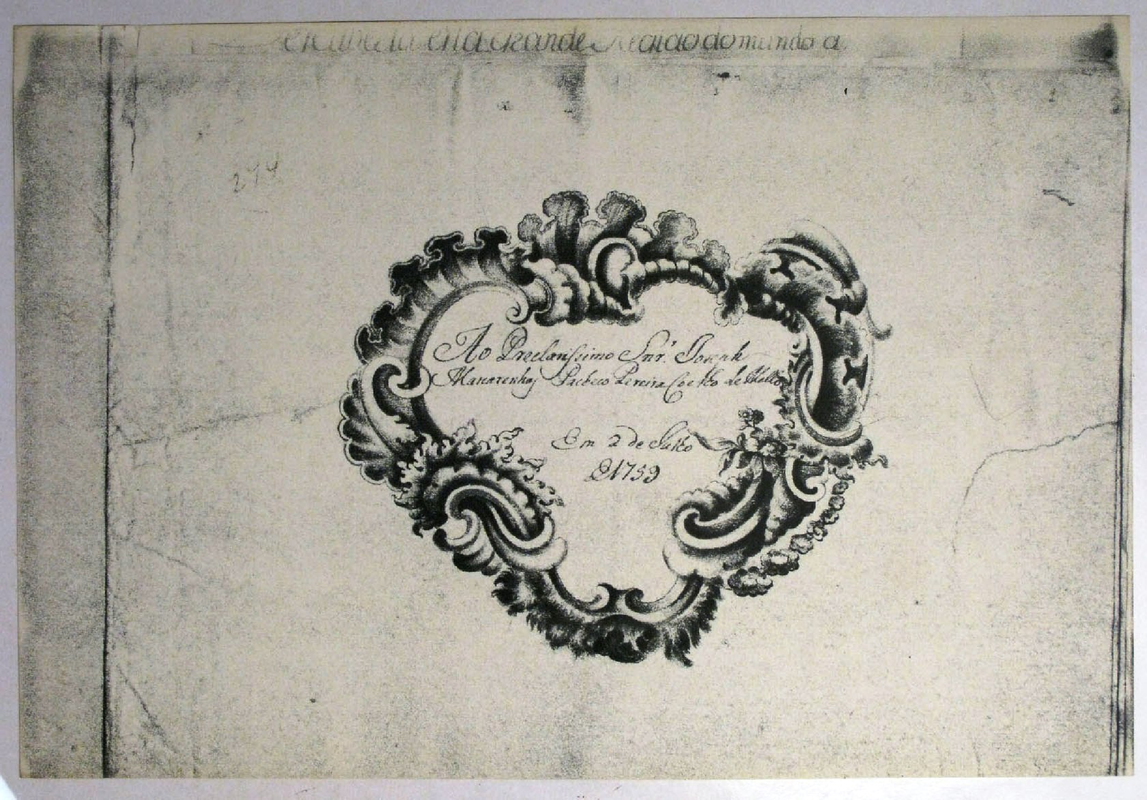 Grande Região do mundo a
294
Ao Preclarissimo Snr. Joseph
Mascarenhas Pacheco Pereira Coelho de Mello
Em 2 de Julho
D 1759